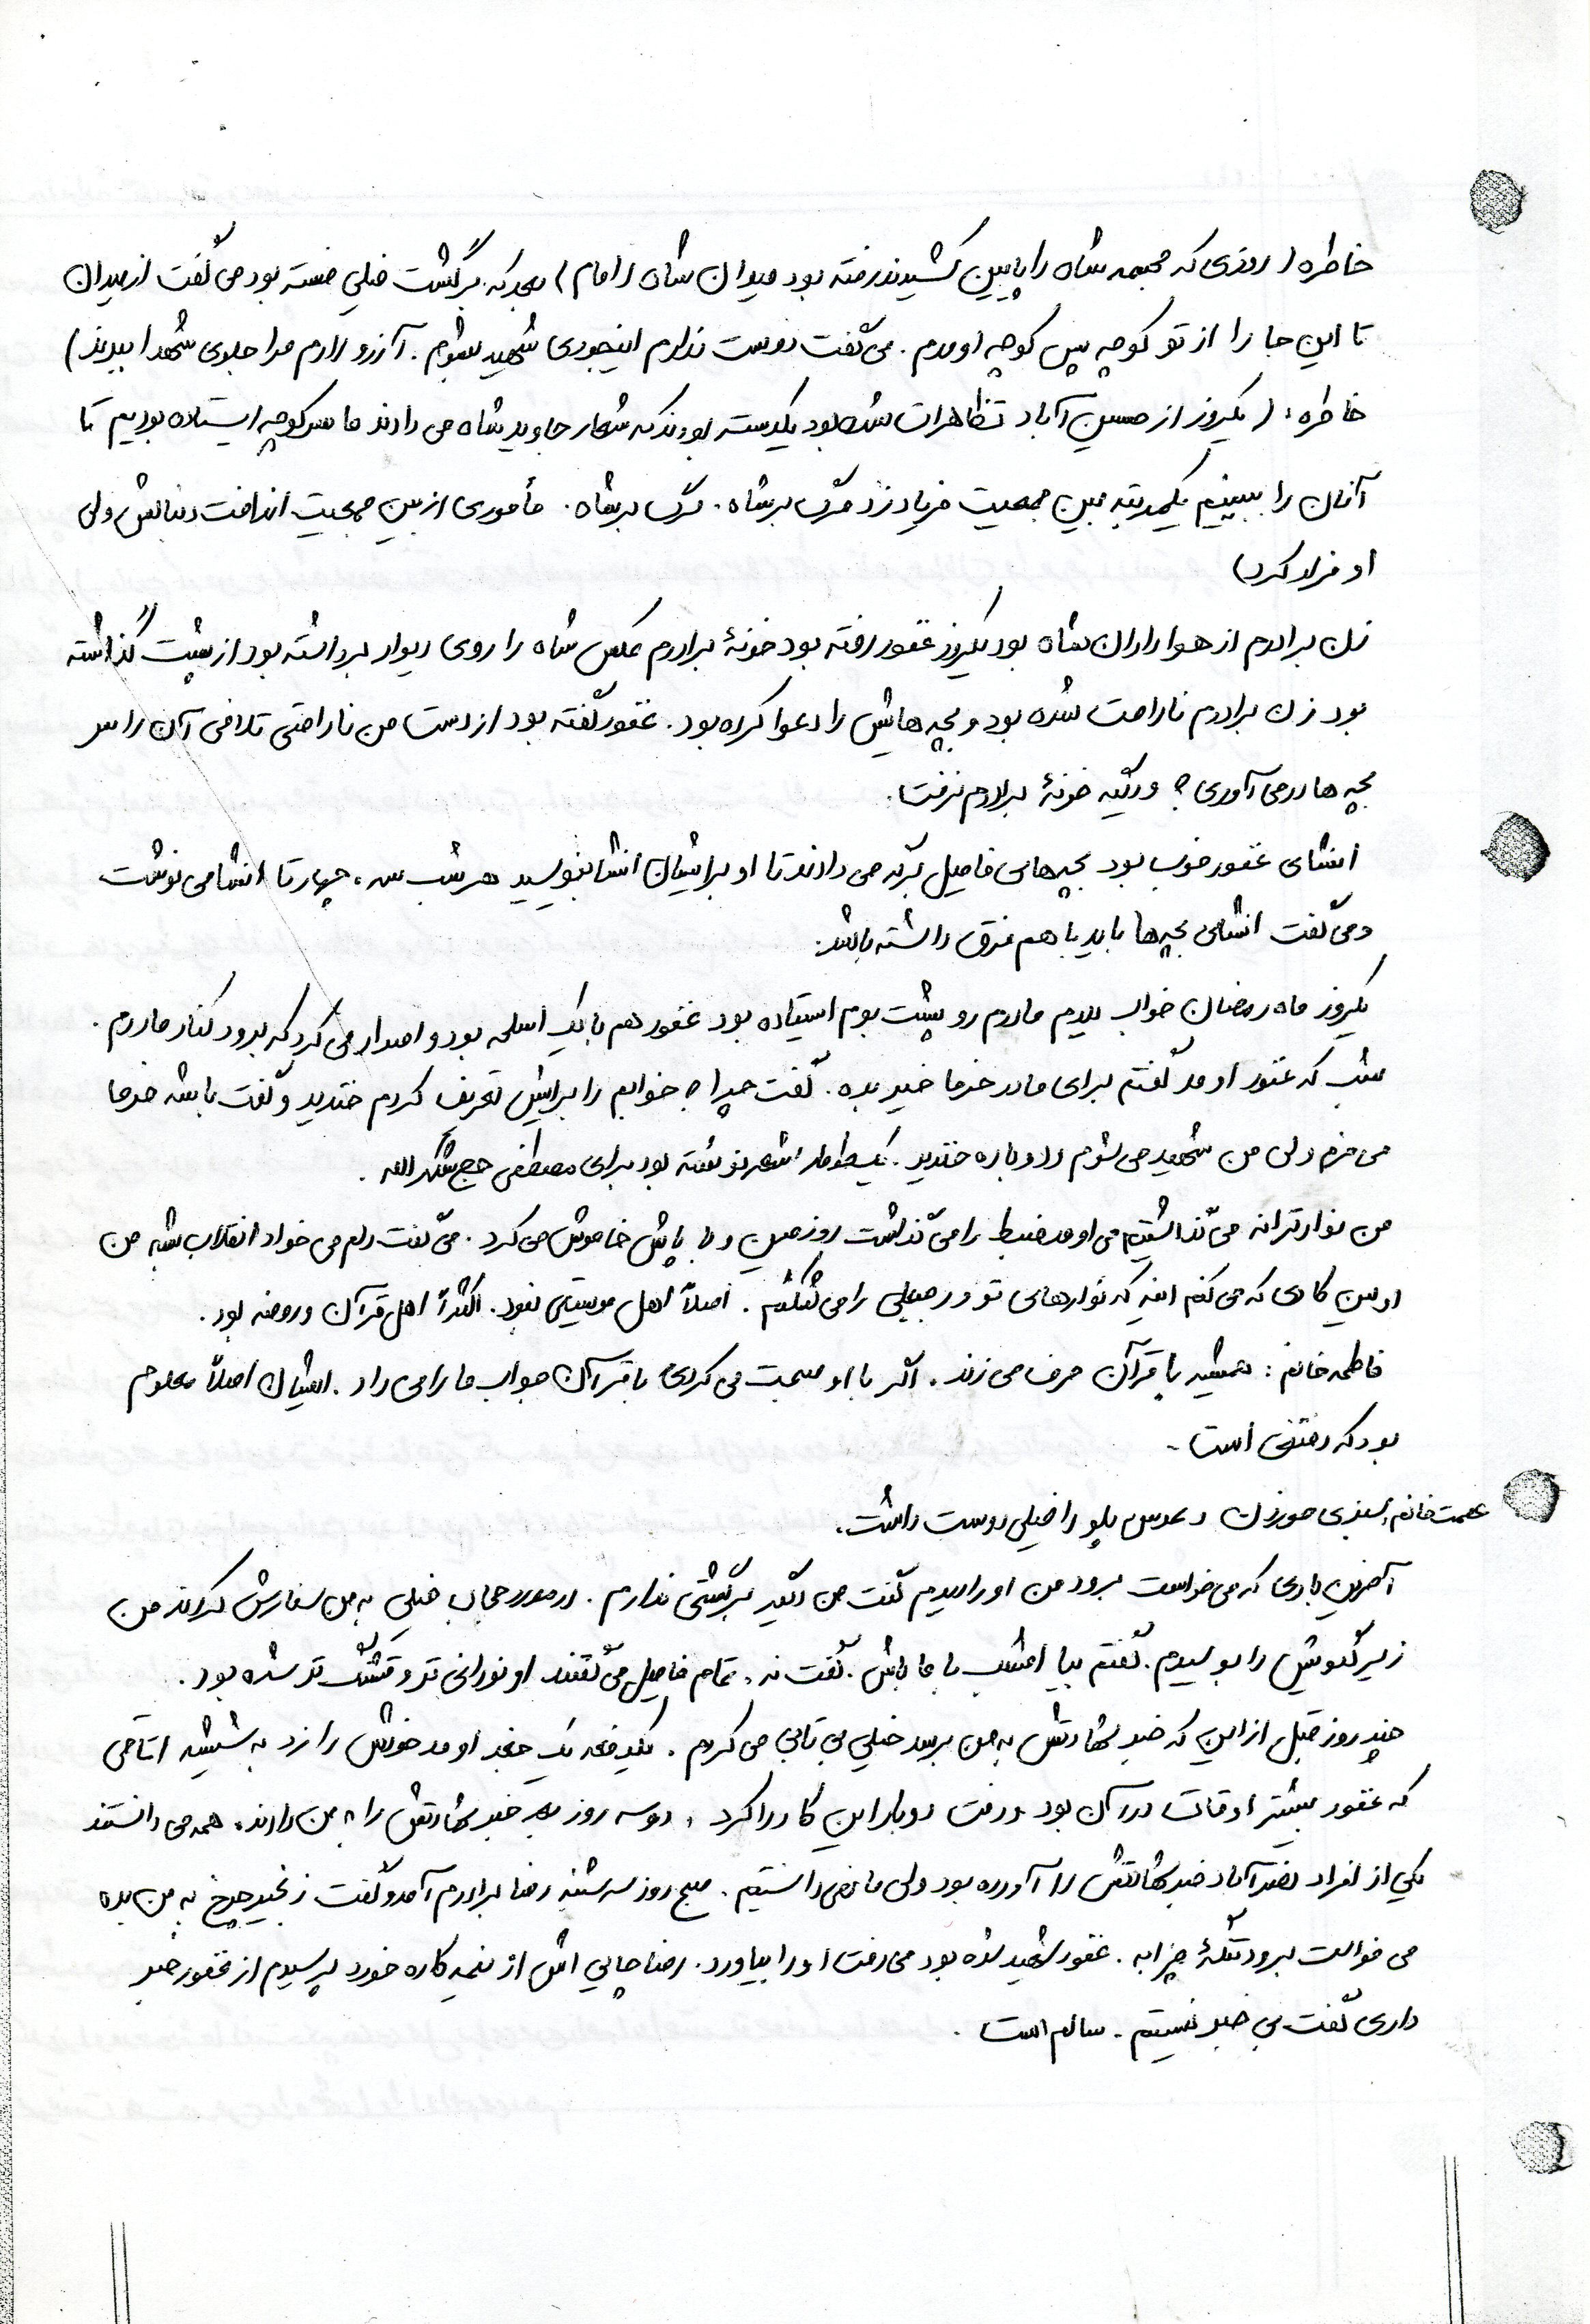 خاطره (روزی که مجسمه شاه را پایین کشیدند رفته بود میدان شاه (امام) بعد که برگشت خیلی خسته بود می گفت از میدان
تا این جا را از تو کوچه پس کوچه اومدم. می گفت دوست ندارم اینجوری شهید بشوم. آرزو دارم مرا جلوی شهدا ببرند)
خاطره: (یکروز از حسین آباد تظاهرات شده بود یکدسته بودند که شعار جاوید شاه می دادند ما سر کوچه ایستاده بودیم تا
آنان را ببینیم یکمرتبه بین جمعیت فریاد زد مرگ بر شاه. مرگ بر شاه. مأموری از بین جمعیت انداخت دنبالش ولی
او فرار کرد)
زن برادرم از هواداران شاه بود یکروز غفور رفته بود خونۀ برادرم عکس شاه را روی دیوار برداشته بود از پشت گذاشته
بود زن برادرم ناراحت شده بود و بچه هایش را دعوا کرده بود. غفور گفته بود از دست من ناراحتی تلافی آن را سر
بچه ها در می آوری؟ و دیگه خونۀ برادرم نرفت.
انشای غفور خوب بود بچه های فامیل بهش می دادند تا او برایشان انشا بنویسید هر شب سه، چهار تا انشا می نوشت
و می گفت انشای بچه ها باید با هم فرق داشته باشد.
یکروز ماه رمضان خواب دیدم مادرم رو پشت بوم ایستاده بود غفور هم با یک اسلحه بود و اصرار می کرد که برود کنار مادرم.
شب که غفور اومد گفتم برای مادر خرما خیر بده. گفت چرا؟ خوابم را برایش تعریف کردم خندید و گفت باشه خرما
می خرم ولی من شهید می شوم و دوباره خندید. یک طومار شعر نوشته بود برای مصطفی حاج شکرالله.
من نوار ترانه می گذاشتیم می اومد ضبط را می گذاشت روز مین و با پاش خاموش می کرد. می گفت دلم می خواد انقلاب بشه من
اولین کاری که می کنم اینه که نوارهای تو و رجبعلی را می شکنم. اصلاً اهل موسیقی نبود. اکثراً اهل قرآن و روضه بود.
فاطمه خانم: همیشه با قرآن حرف می زند. اگر با او صحبت می کردی با قرآن جواب ما را می داد. ایشان اصلاً معلوم
بود که رفتنی است.
عصمت خانم: سبزی خوردن و عدس پلو را خیلی دوست داشت.
آخرین باری که می خواست برود من او را دیدم گفت من دیگه برگشتی ندارم. در مورد حجاب خیلی به من سفارش کردند من
زیر گلویش را بوسیدم. گفتم بیا امشب با ما باش. گفت نه. تمام فامیل می گفتند او نورانی تر و قشنگ تر شده بود.
چند روز قبل از این که خبر شهادتش به من برسد خیلی بی تابی می کردم. یکدفعه یک جغد اومد خودش را زد به شیشه اتاقی
که غفور بیشتر اوقات در آن بود و رفت دوبار این کار را کرد، دو سه روز بعد خبر شهادتش را به من دادند. همه می دانستند
یکی از افراد نصرآباد خبر شهادتش را آورده بود ولی ما نمی دانستیم. صبح روز سه شنبه رضا برادرم آمد و گفت زنجیر چرخ به من بده
می خواست برود تنگۀ چزابه. غفور شهید شده بود می رفت او را بیاورد. رضا چایی اش از نیمه کاره خورد پرسیدم از غفور خبر
داری گفت بی خبر نیستم. سالم است.